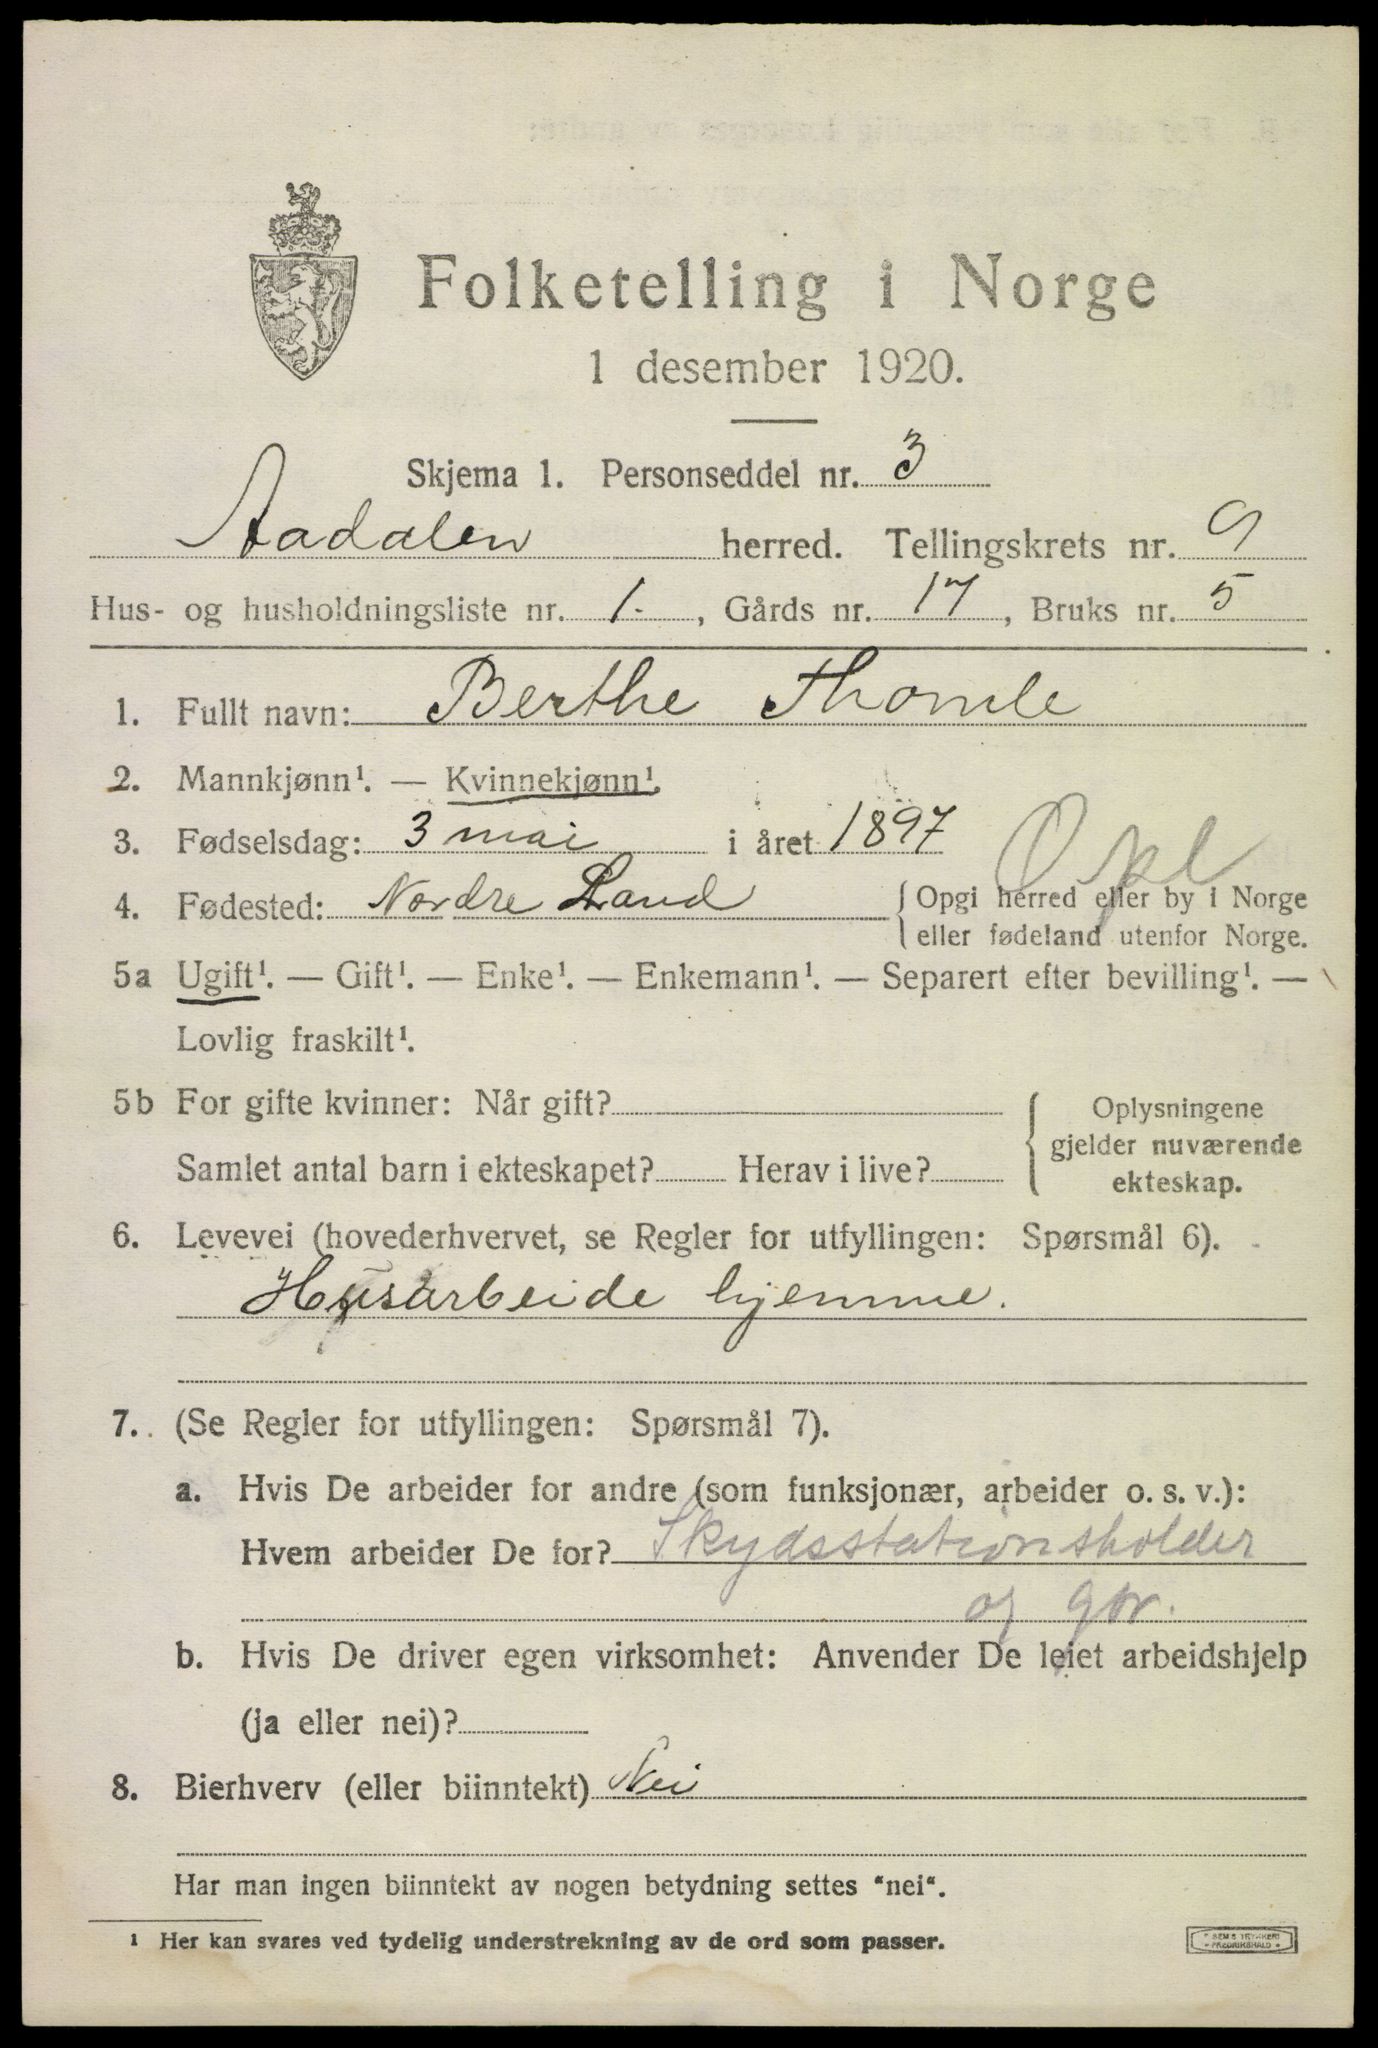 Folketelling i Norge
1 desember 1920.
Skjema 1. Personseddel nr. 3
Aadalen herred. Tellingskrets nr. 9
Hus- og husholdningsliste nr. 1. , Gårds nr. 17 , Bruks nr. 5
1. Fullt navn: Berthe Thomle
2. Mannkjønn¹. — Kvinnekjønn¹.
3. Fødselsdag: 3 mai i året 1897
Opl
4. Fødested: Nordre Land { Opgi herred eller by i Norge
eller fødeland utenfor Norge.
5a Ugift¹. — Gift¹. — Enke¹. — Enkemann¹. — Separert efter bevilling¹. —
Lovlig fraskilt¹.
5b For gifte kvinner: Når gift?
Samlet antal barn i ekteskapet? Herav i live?
Oplysningene
gjelder nuværende
ekteskap.
6. Levevei (hovederhvervet, se Regler for utfyllingen: Spørsmål 6).
Husarbeide hjemme.
7. (Se Regler for utfyllingen: Spørsmål 7).
a. Hvis De arbeider for andre (som funksjonær, arbeider o. s. v.):
Hvem arbeider De for? Skydsstationsholder
og gbr.
b. Hvis De driver egen virksomhet: Anvender De leiet arbeidshjelp
(ja eller nei)?
8. Bierhverv (eller biinntekt) Nei
Har man ingen biinntekt av nogen betydning settes "nei".
¹ Her kan svares ved tydelig understrekning av de ord som passer.
SEM'S TRYKKERI
FREDRIKSHALD